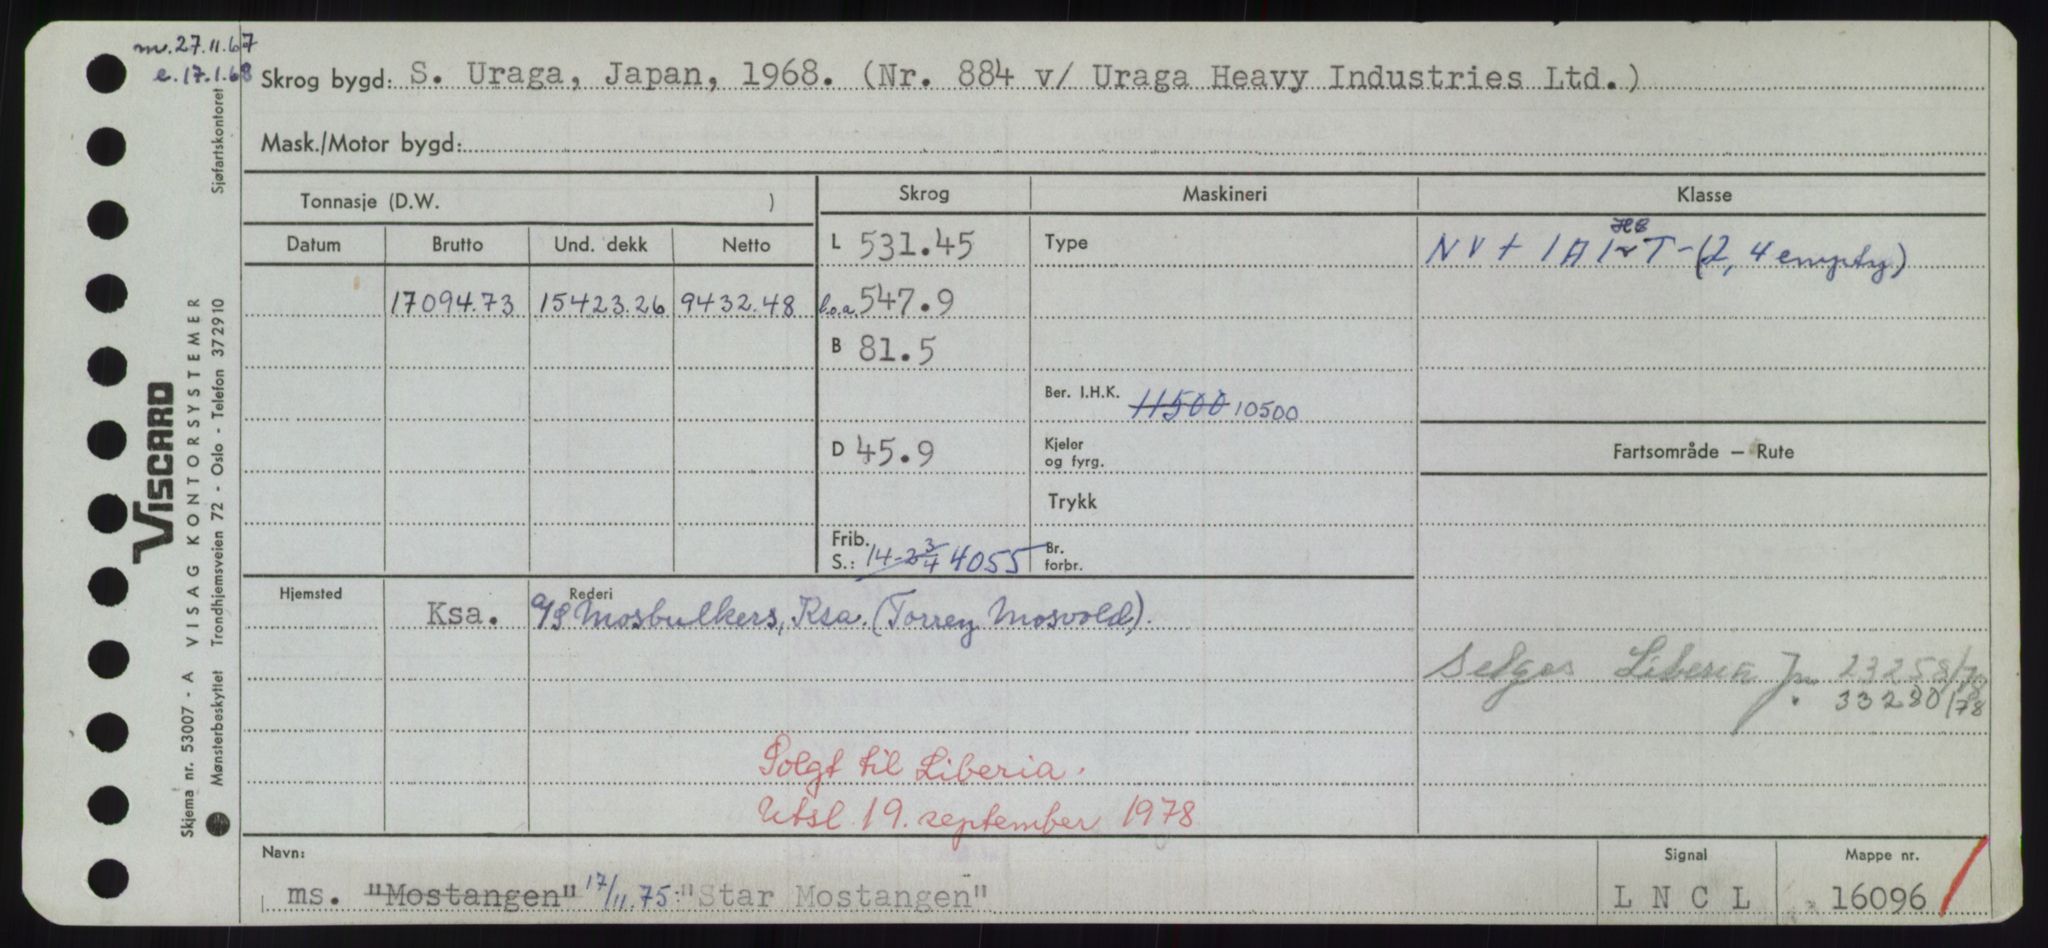 m. 27.11.67
e. 17.1.68
Skrog bygd: S. Uraga, Japan, 1968. (Nr. 884 v/ Uraga Heavy Industries Ltd.)
Mask./Motor bygd:
Tonnasje (D.W. )
Skrog
Maskineri
Klasse
Datum
Brutto
Und. dekk
Netto
L 531.45
Type
HC
NV + 1A1 T - (2, 4 empty)
17094.73 15423.26 9432.48
l.o.a. 547.9
B 81.5
Ber. I.H.K. 11500 10500
D 45.9
Kjeler
og fyrg.
Fartsområde – Rute
Trykk
Frib.
S.: 14-2 3/4 4055
Br.
forbr.
Hjemsted
Rederi
Ksa. A/S Mosbulkers, Ksa. (Torrey Mosvold).
Selges Liberia Jn. 23258/78
33280/78
Solgt til Liberia.
Utsl. 19. september 1978
Navn:
Signal
Mappe nr.
ms. "Mostangen" 17/11.75 "Star Mostangen"
L N C L
16096
VISCARD
Skjema nr. 53007 - A VISAG KONTORSYSTEMER
Mønsterbeskyttet Trondhjemsveien 72 - Oslo - Telefon 372910 Sjøfartskontoret